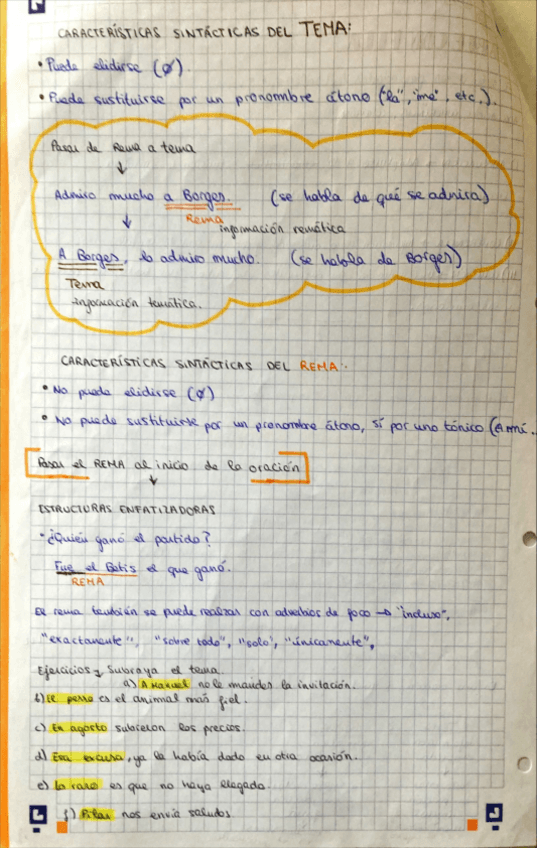 CARACTERÍSTICAS SINTÁCTICAS DEL TEMA:
• Puede elidirse (Ø).
• Puede sustituirse por un pronombre átono ("la", "me", etc.).
Pasar de Rema a tema
↓
Admiro mucho a Borges. (se habla de qué se admira)
↓ Rema información remática
A Borges, lo admiro mucho. (se habla de Borges)
Tema
información temática.
CARACTERÍSTICAS SINTÁCTICAS DEL REMA:
• No puede elidirse (Ø)
• No puede sustituirse por un pronombre átono, sí por uno tónico (A mí..
Pasar el REMA al inicio de la oración
↓
ESTRUCTURAS ENFATIZADORAS
• ¿Quién ganó el partido?
Fue el Betis el que ganó.
REMA
El rema también se puede realzar con adverbios de foco → "incluso",
"exactamente", "sobre todo", "solo", "únicamente",
Ejercicios, Subraya el tema.
a) A Manuel no le mandes la invitación.
b) El perro es el animal más fiel.
c) En agosto subieron los precios.
d) Esa excusa, ya la había dado en otra ocasión.
e) Lo raro es que no haya llegado.
f) Pilar nos envía saludos